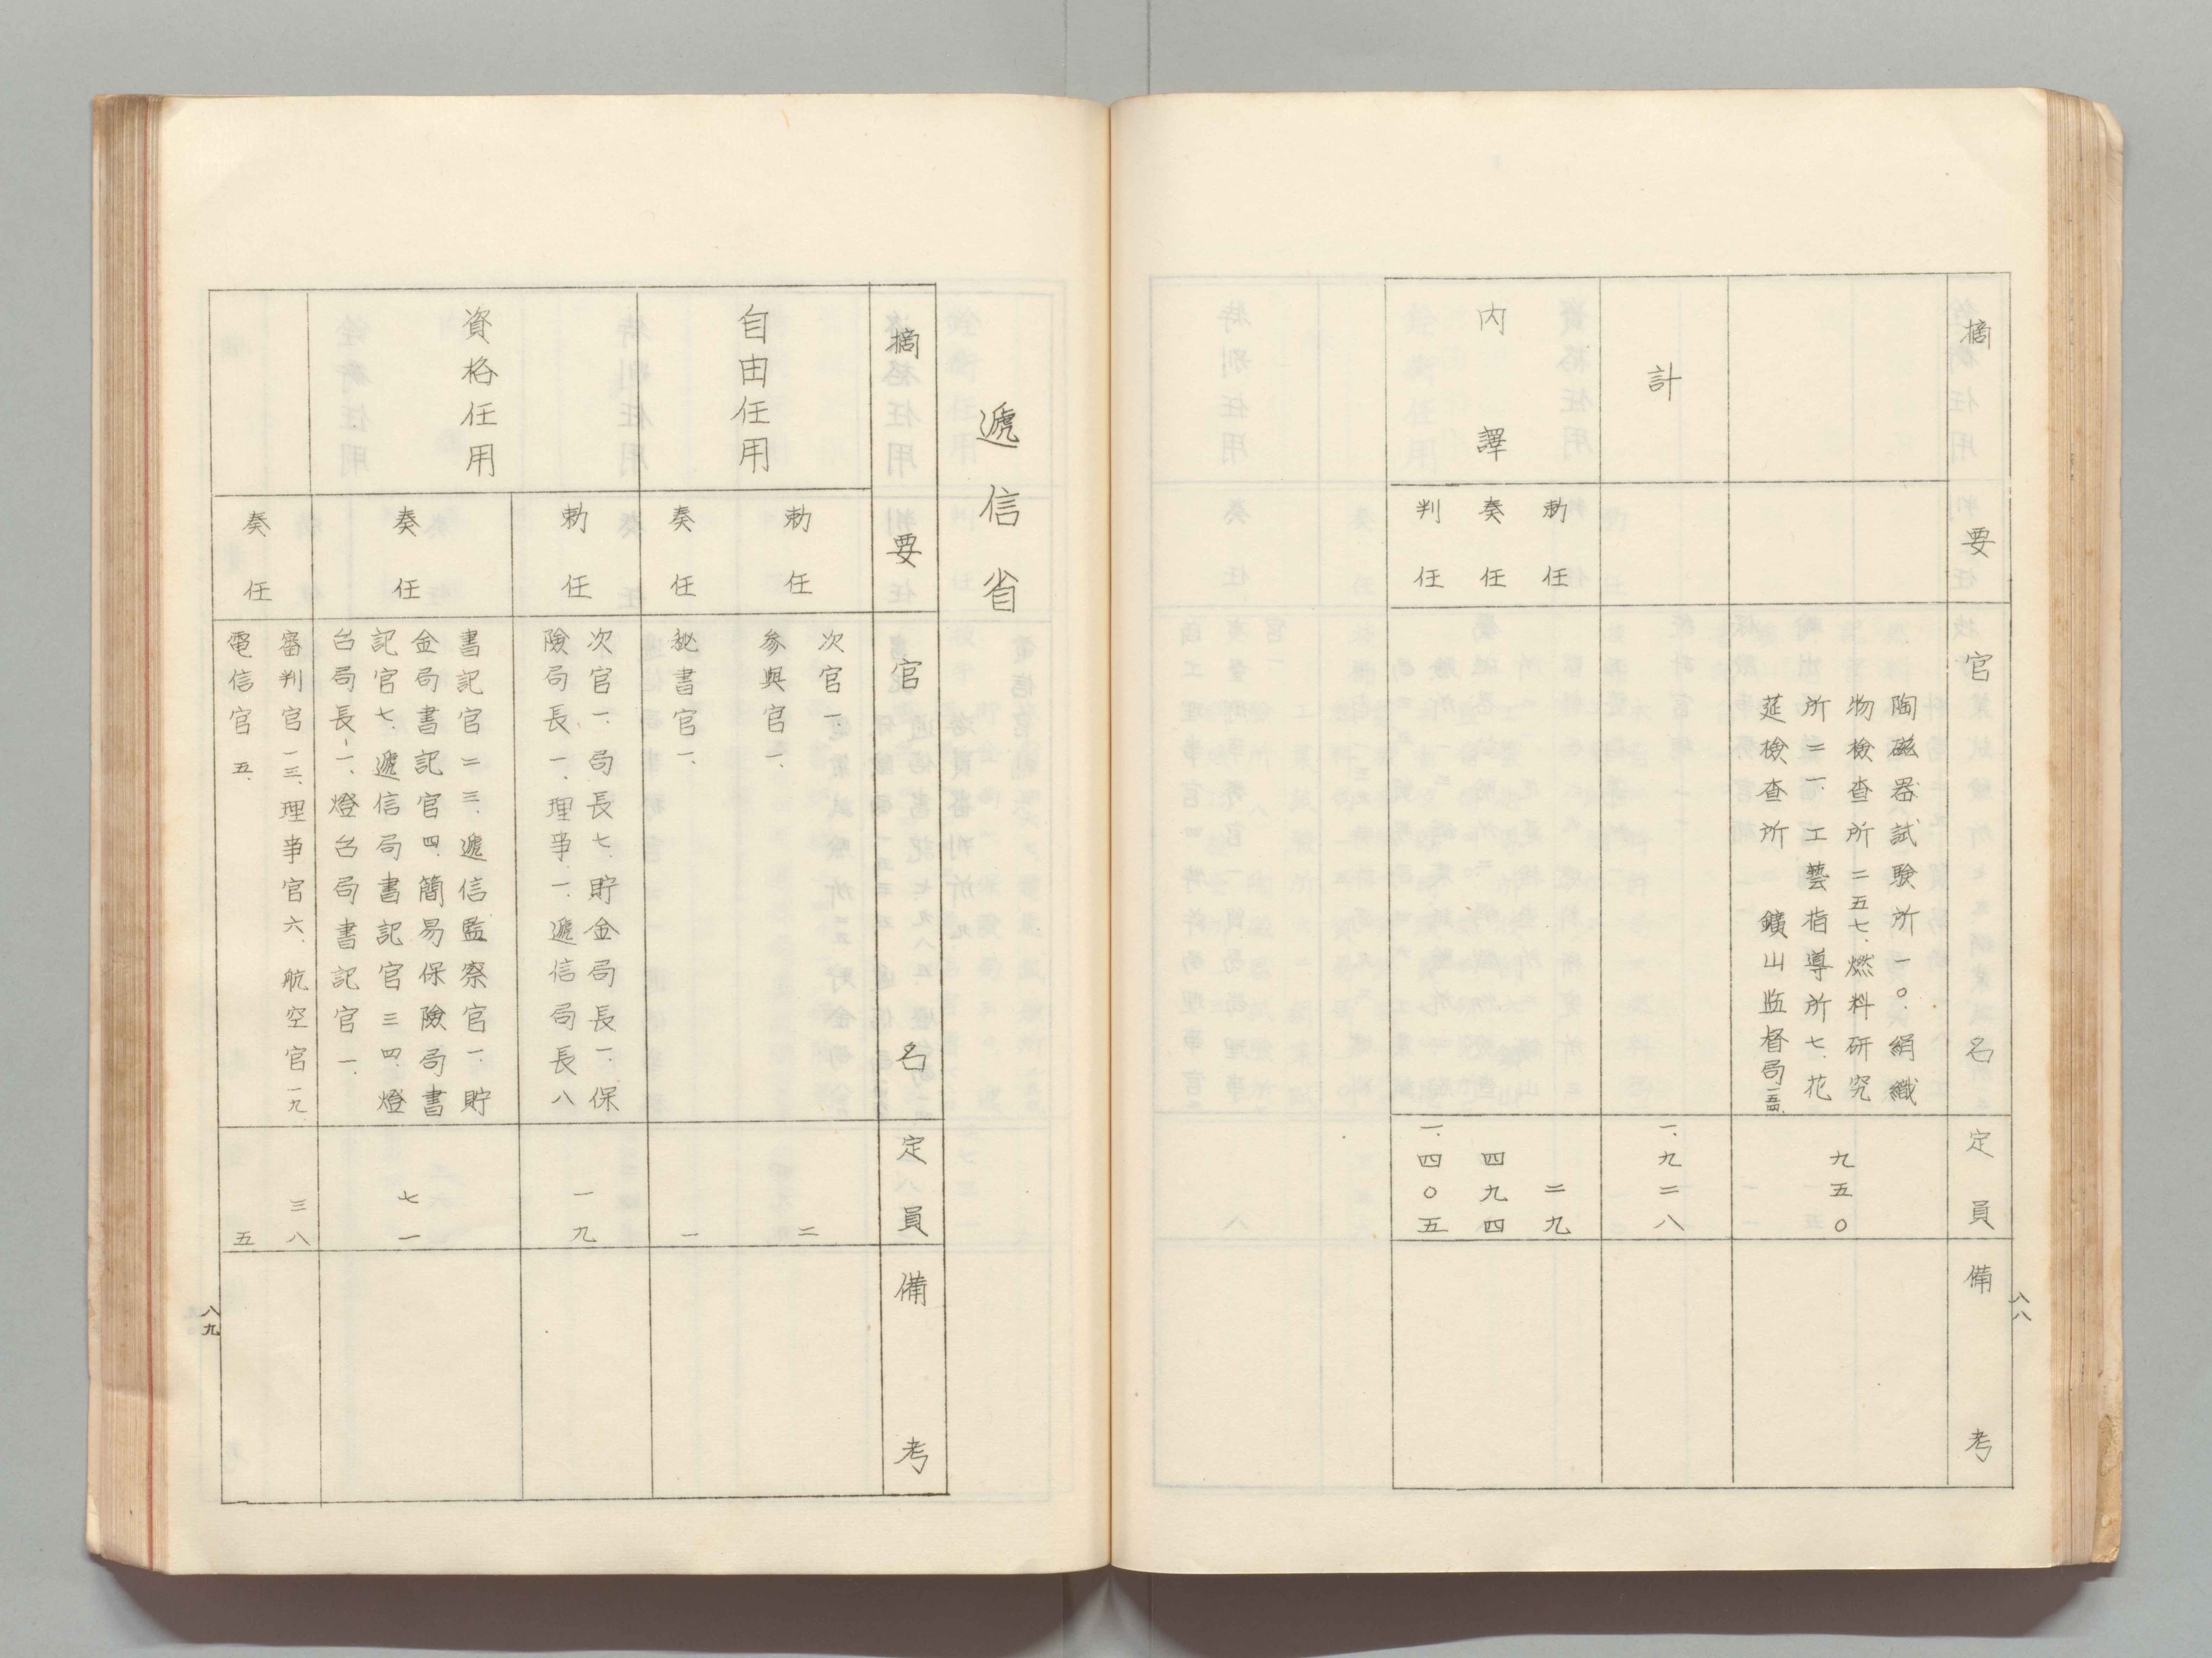 摘要
官名
定員
備考
陶磁器試験所一〇.絹織
物検査所二五七.燃料研究
所二一.工藝指導所七.花
莚検査所 鑛山监督局
九五〇
計
一、九二八
内譯
勅任
二九
奏任
四九四
判任
一、四〇五
八八
遞信省
摘要
官名
定員
備考
自由任用
勅任
次官一、
参與官一、
二
奏任
秘書官一、
一
資格任用
勅任
次官一、局長七.貯金局長一.保
險局長一、理事一、遞信局長八
一九
奏任
書記官二三、遞信監察官一、貯
金局書記官四、簡易保險局書
記官七、遞信局書記官三四、燈
台局長一、燈台局書記官一、
七一
奏任
審判官一三、理事官六、航空官一九、
三八
電信官五、
五
八九